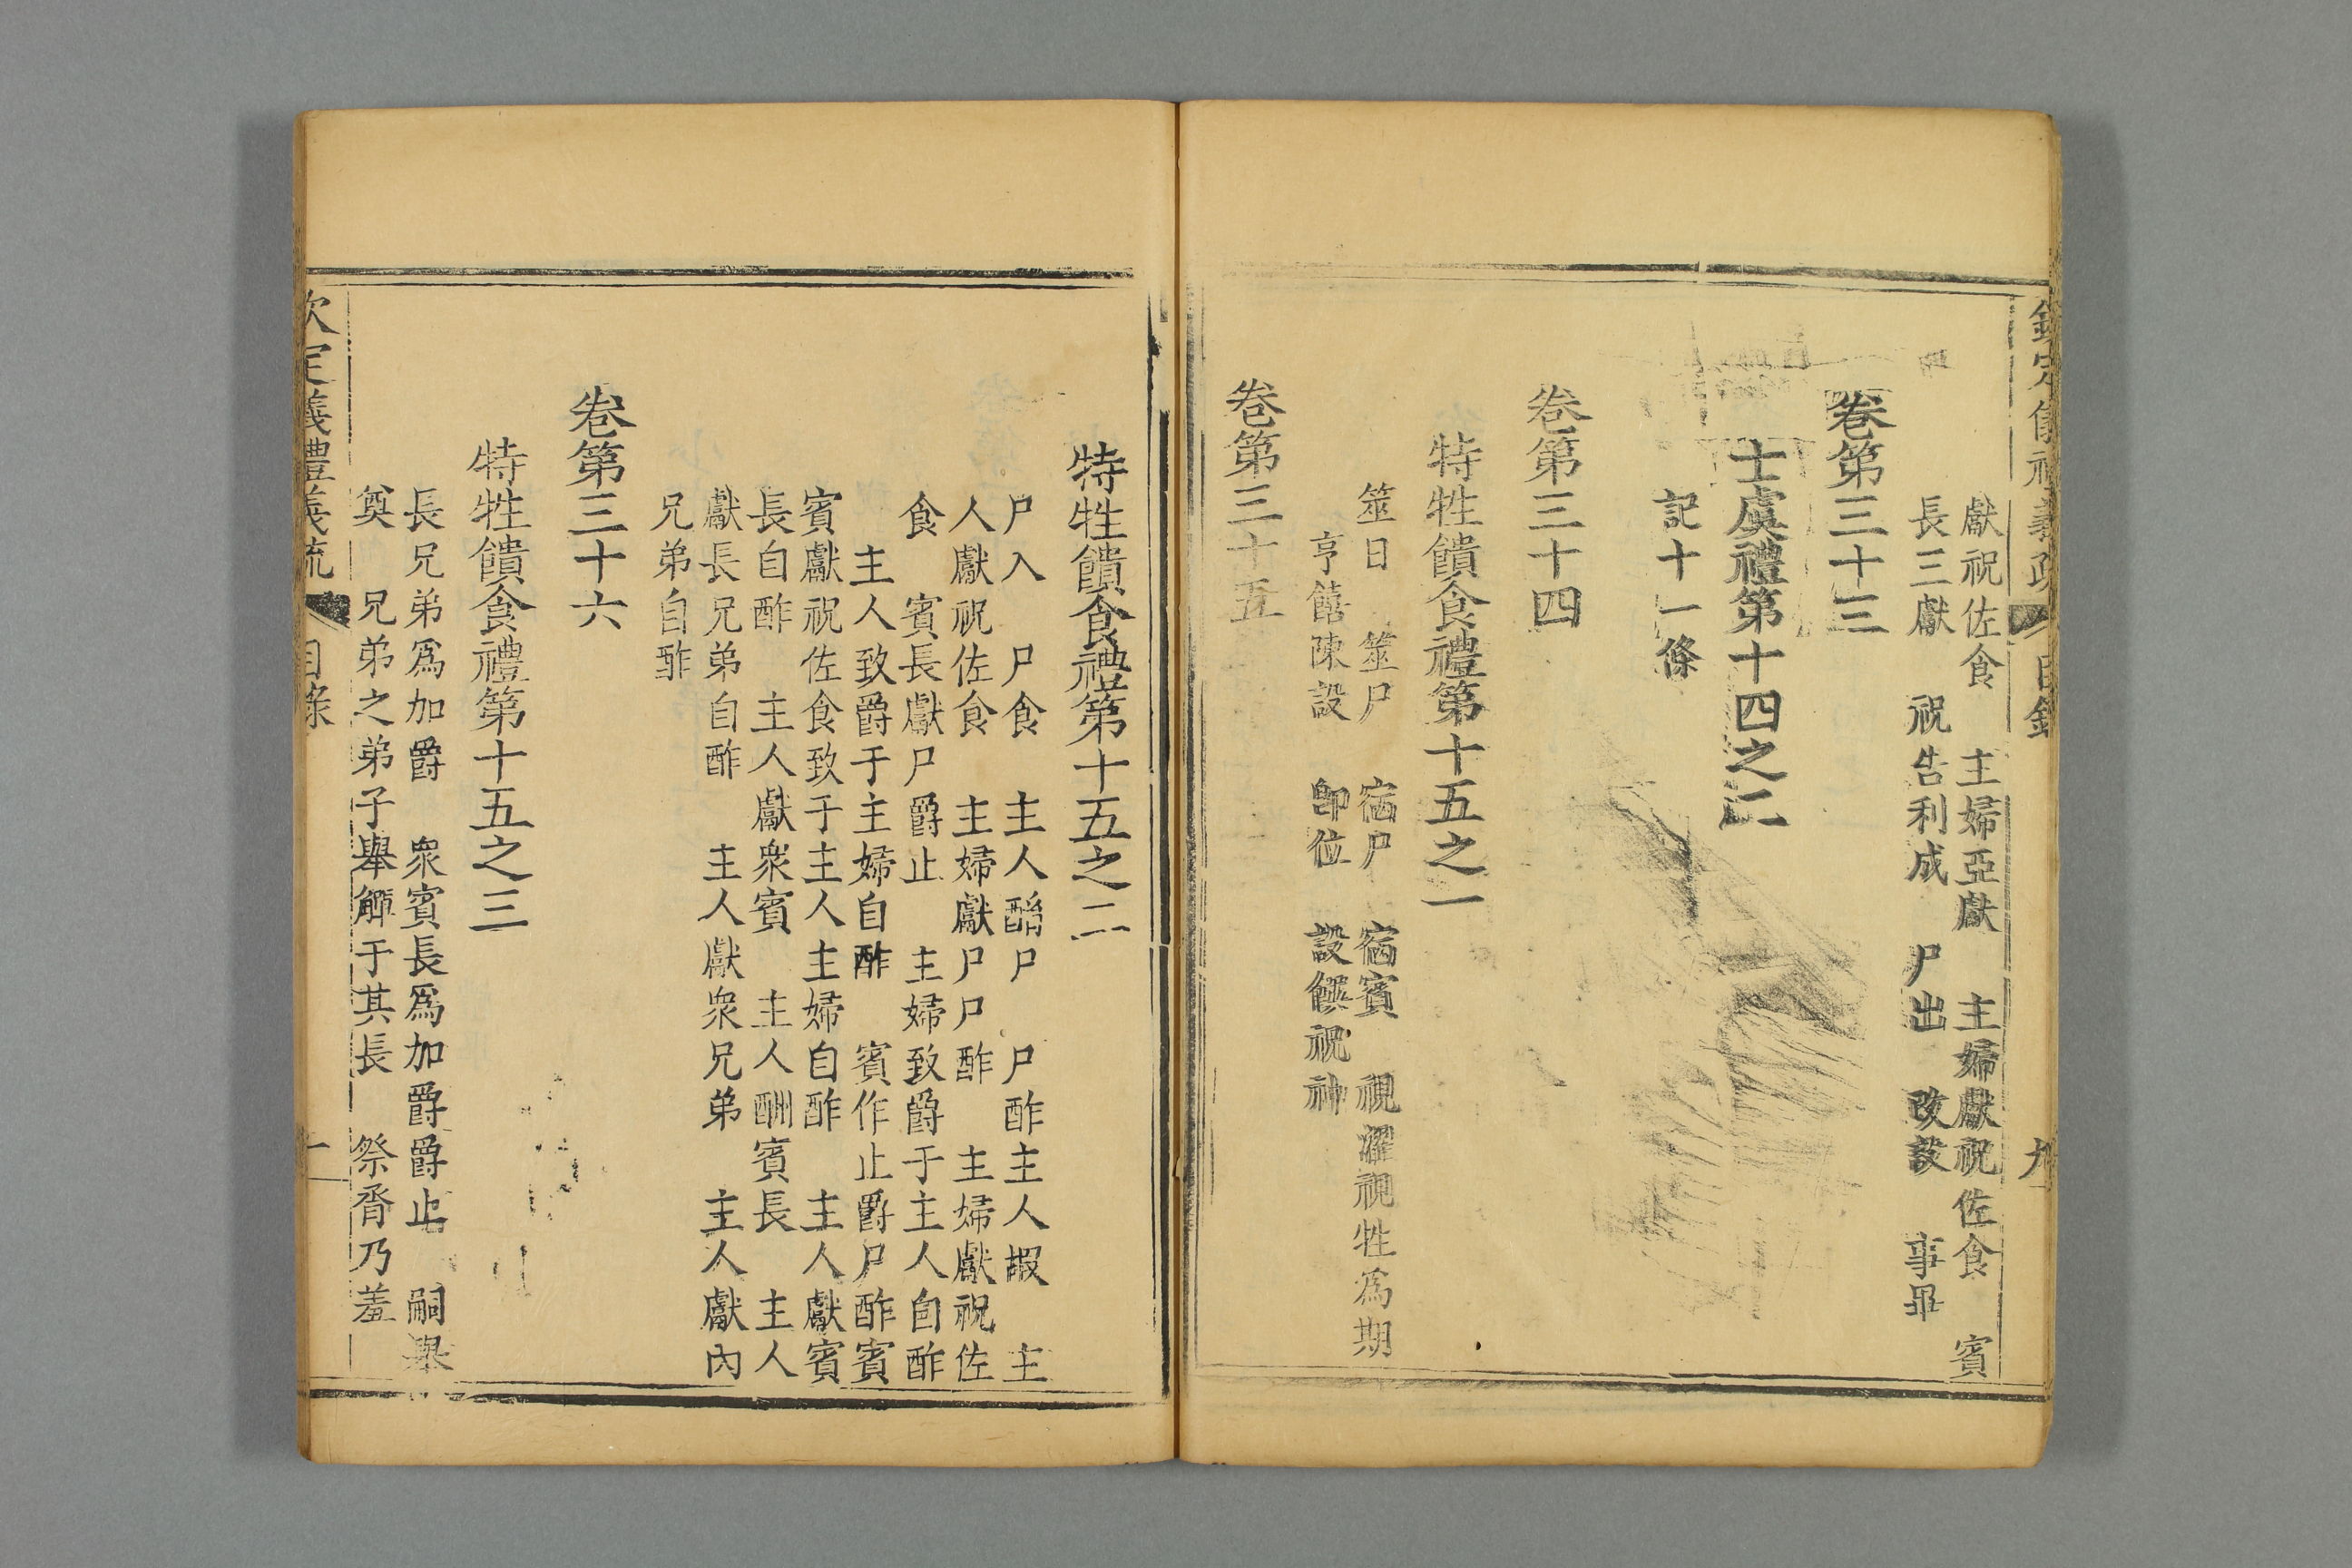 欽定儀禮義疏 目錄 九
獻祝佐食 主婦亞獻 主婦獻祝佐食 賓
長三獻 祝告利成 尸出 改設 事畢
卷第三十三
士虞禮第十四之二
記十一條
卷第三十四
特牲饋食禮第十五之一
筮日 筮尸 宿尸 宿賓 視濯視牲爲期
亨饎陳設 即位 設饌祝神
卷第三十五
特牲饋食禮第十五之二
尸入 尸食 主人酳尸 尸酢主人嘏 主
人獻祝佐食 主婦獻尸尸酢 主婦獻祝佐
食 賓長獻尸爵止 主婦致爵于主人自酢
主人致爵于主婦自酢 賓作止爵尸酢賓
賓獻祝佐食致于主人主婦自酢 主人獻賓
長自酢 主人獻衆賓 主人酬賓長 主人
獻長兄弟自酢 主人獻衆兄弟 主人獻內
兄弟自酢
卷第三十六
特牲饋食禮第十五之三
長兄弟爲加爵 衆賓長爲加爵爵止 嗣舉
奠 兄弟之弟子舉觶于其長 祭脀乃羞
欽定儀禮義疏 目錄